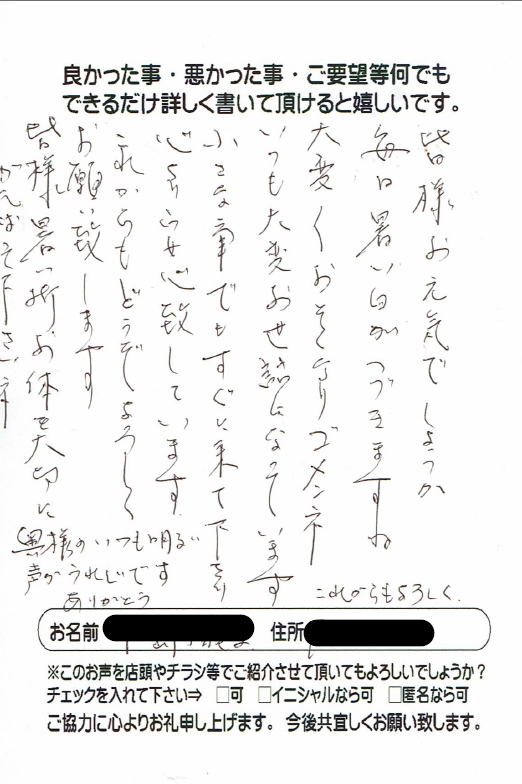 良かった事・悪かった事・ご要望等何でも
できるだけ詳しく書いて頂けると嬉しいです。
皆様お元気でしょうか
毎日暑い日がつづきますね
大変くおそくなりゴメンネ
いつも大変お世話になっています
小さな事でもすぐに来て下さり
心より安心致しています
これからもどうぞよろしく
お願い致します
皆様暑い折お体を大切に
がんばって下さいネ
奥様のいつも明るい
声がうれしいです
ありがとう
これからもよろしく.
お名前
住所
※このお声を店頭やチラシ等でご紹介させて頂いてもよろしいでしょうか？
チェックを入れて下さい⇒ □可 □イニシャルなら可 □匿名なら可
ご協力に心よりお礼申し上げます。今後共宜しくお願い致します。